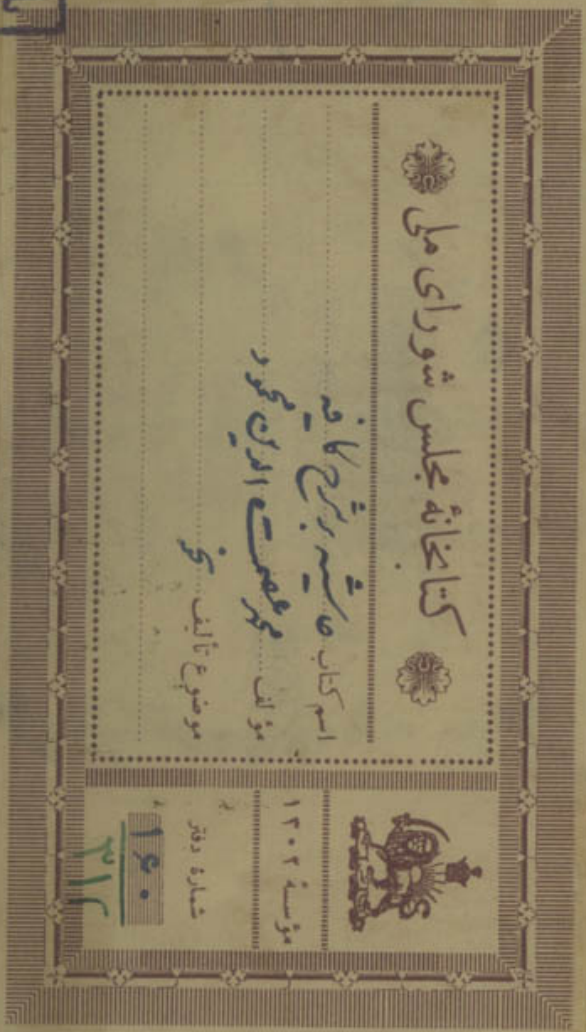 کتابخانهٔ مجلس شورای ملی
اسم کتاب حاشیه بر شرح کافیه
مؤلف محمد عصمت الدین محمود
موضوع تألیف نحو
مؤسسهٔ ۱۳۰۲
شمارهٔ دفتر
۳۱۲